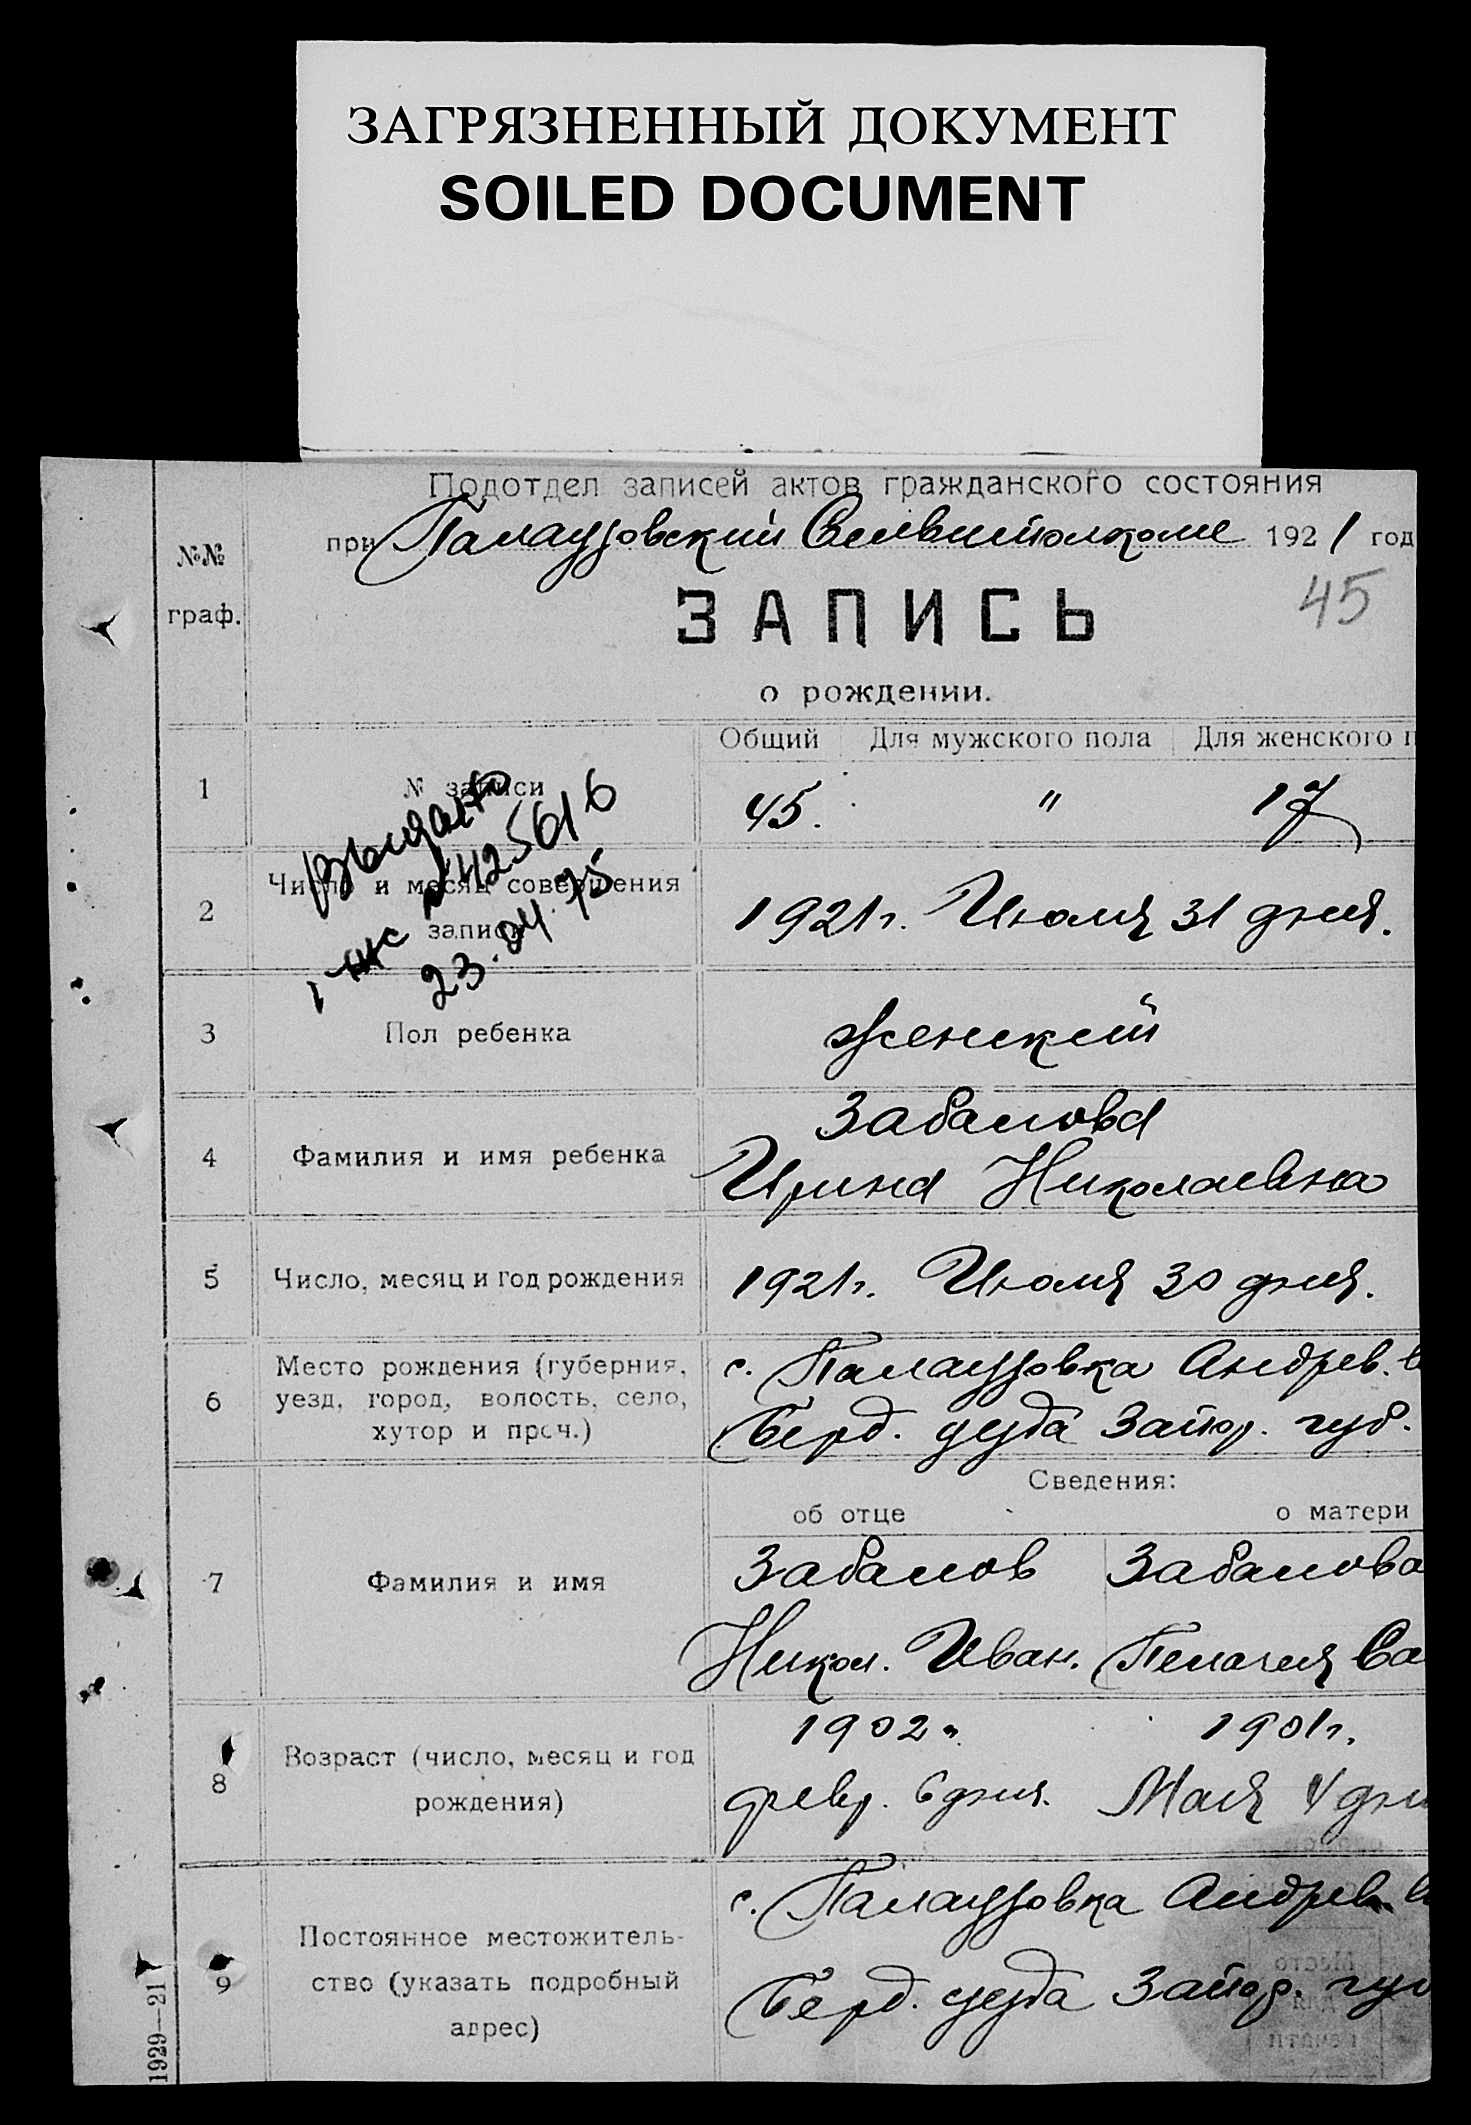 ЗАГРЯЗНЕННЫЙ ДОКУМЕНТ
SOILED DOCUMENT
Подотдел записей актов гражданского состояния
при Палаузовский 1921 год
№№
граф.
ЗАПИСЬ
45
о рождении.
Общий Для мужского пола Для женского п
1 № записи 45. " 17
Выдано
425616
23.04.75
2 Число и месяц совершения записи 1921 г. Июля 31 дня.
3 Пол ребенка женский
4 Фамилия и имя ребенка Забанова
Ирина Николаевна
5 Число, месяц и год рождения 1921 г. Июля 30 дня.
6 Место рождения (губерния, с. Палаузовка Андрев. в
уезд, город, волость, село, Берд. уезда Запор. губ.
хутор и проч.)
Сведения:
об отце о матери
7 Фамилия и имя Забанов Забанова
Никол. Иван. Пелагея Са
1902 г. 1901 г.
8 Возраст (число, месяц и год
рождения) февр. 6 дня. Мая 4 дн
с. Палаузовка Андрев. в
9 Постоянное местожитель-
ство (указать подробный Берд. уезда Запор. губ
адрес)
1929—21
Место
для
печати